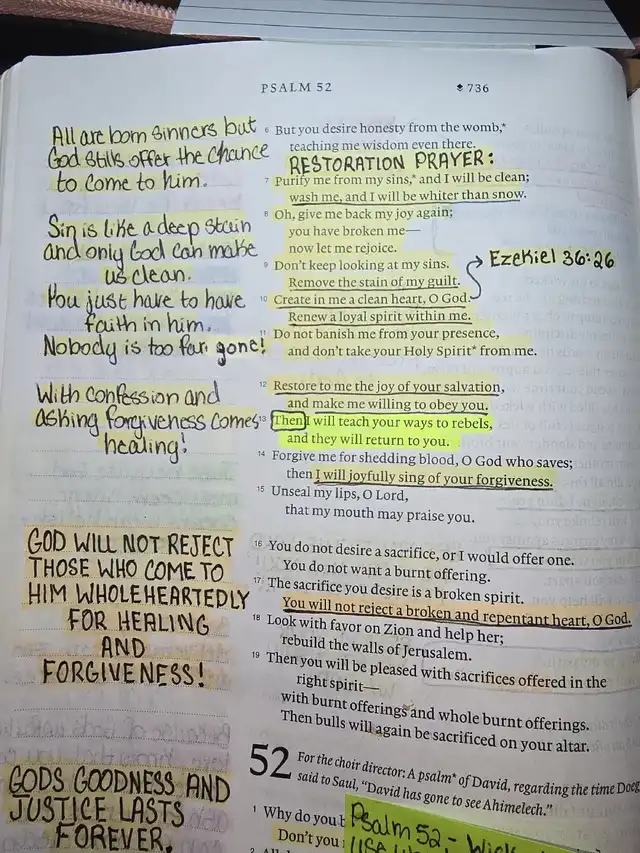 PSALM 52
736
All are born sinners but
God stills offer the chance
to come to him.
Sin is like a deep stain
and only God can make
us clean.
You just have to have
faith in him.
Nobody is too far gone!
With confession and
asking forgiveness comes
healing!
GOD WILL NOT REJECT
THOSE WHO COME TO
HIM WHOLEHEARTEDLY
FOR HEALING
AND
FORGIVENESS!
GODS GOODNESS AND
JUSTICE LASTS
FOREVER.
6 But you desire honesty from the womb,*
teaching me wisdom even there.
RESTORATION PRAYER:
7 Purify me from my sins,* and I will be clean;
wash me, and I will be whiter than snow.
8 Oh, give me back my joy again;
you have broken me—
now let me rejoice.
9 Don't keep looking at my sins.
Remove the stain of my guilt.
10 Create in me a clean heart, O God.
Ezekiel 36:26
Renew a loyal spirit within me.
11 Do not banish me from your presence,
and don't take your Holy Spirit* from me.
12 Restore to me the joy of your salvation,
and make me willing to obey you.
13 Then I will teach your ways to rebels,
and they will return to you.
14 Forgive me for shedding blood, O God who saves;
then I will joyfully sing of your forgiveness.
15 Unseal my lips, O Lord,
that my mouth may praise you.
16 You do not desire a sacrifice, or I would offer one.
You do not want a burnt offering.
17 The sacrifice you desire is a broken spirit.
You will not reject a broken and repentant heart, O God.
18 Look with favor on Zion and help her;
rebuild the walls of Jerusalem.
19 Then you will be pleased with sacrifices offered in the
right spirit—
with burnt offerings and whole burnt offerings.
Then bulls will again be sacrificed on your altar.
52
For the choir director: A psalm* of David, regarding the time Doeg
said to Saul, "David has gone to see Ahimelech."
1 Why do you
Don't you
Psalm 52 -